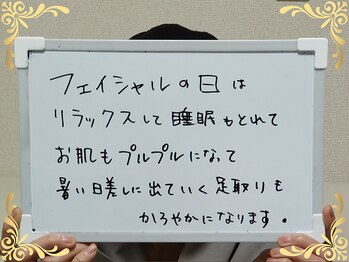 フェイシャルの日は
リラックスして睡眠もとれて
お肌もプルプルになって
暑い日差しに出ていく足取りも
かろやかになります。